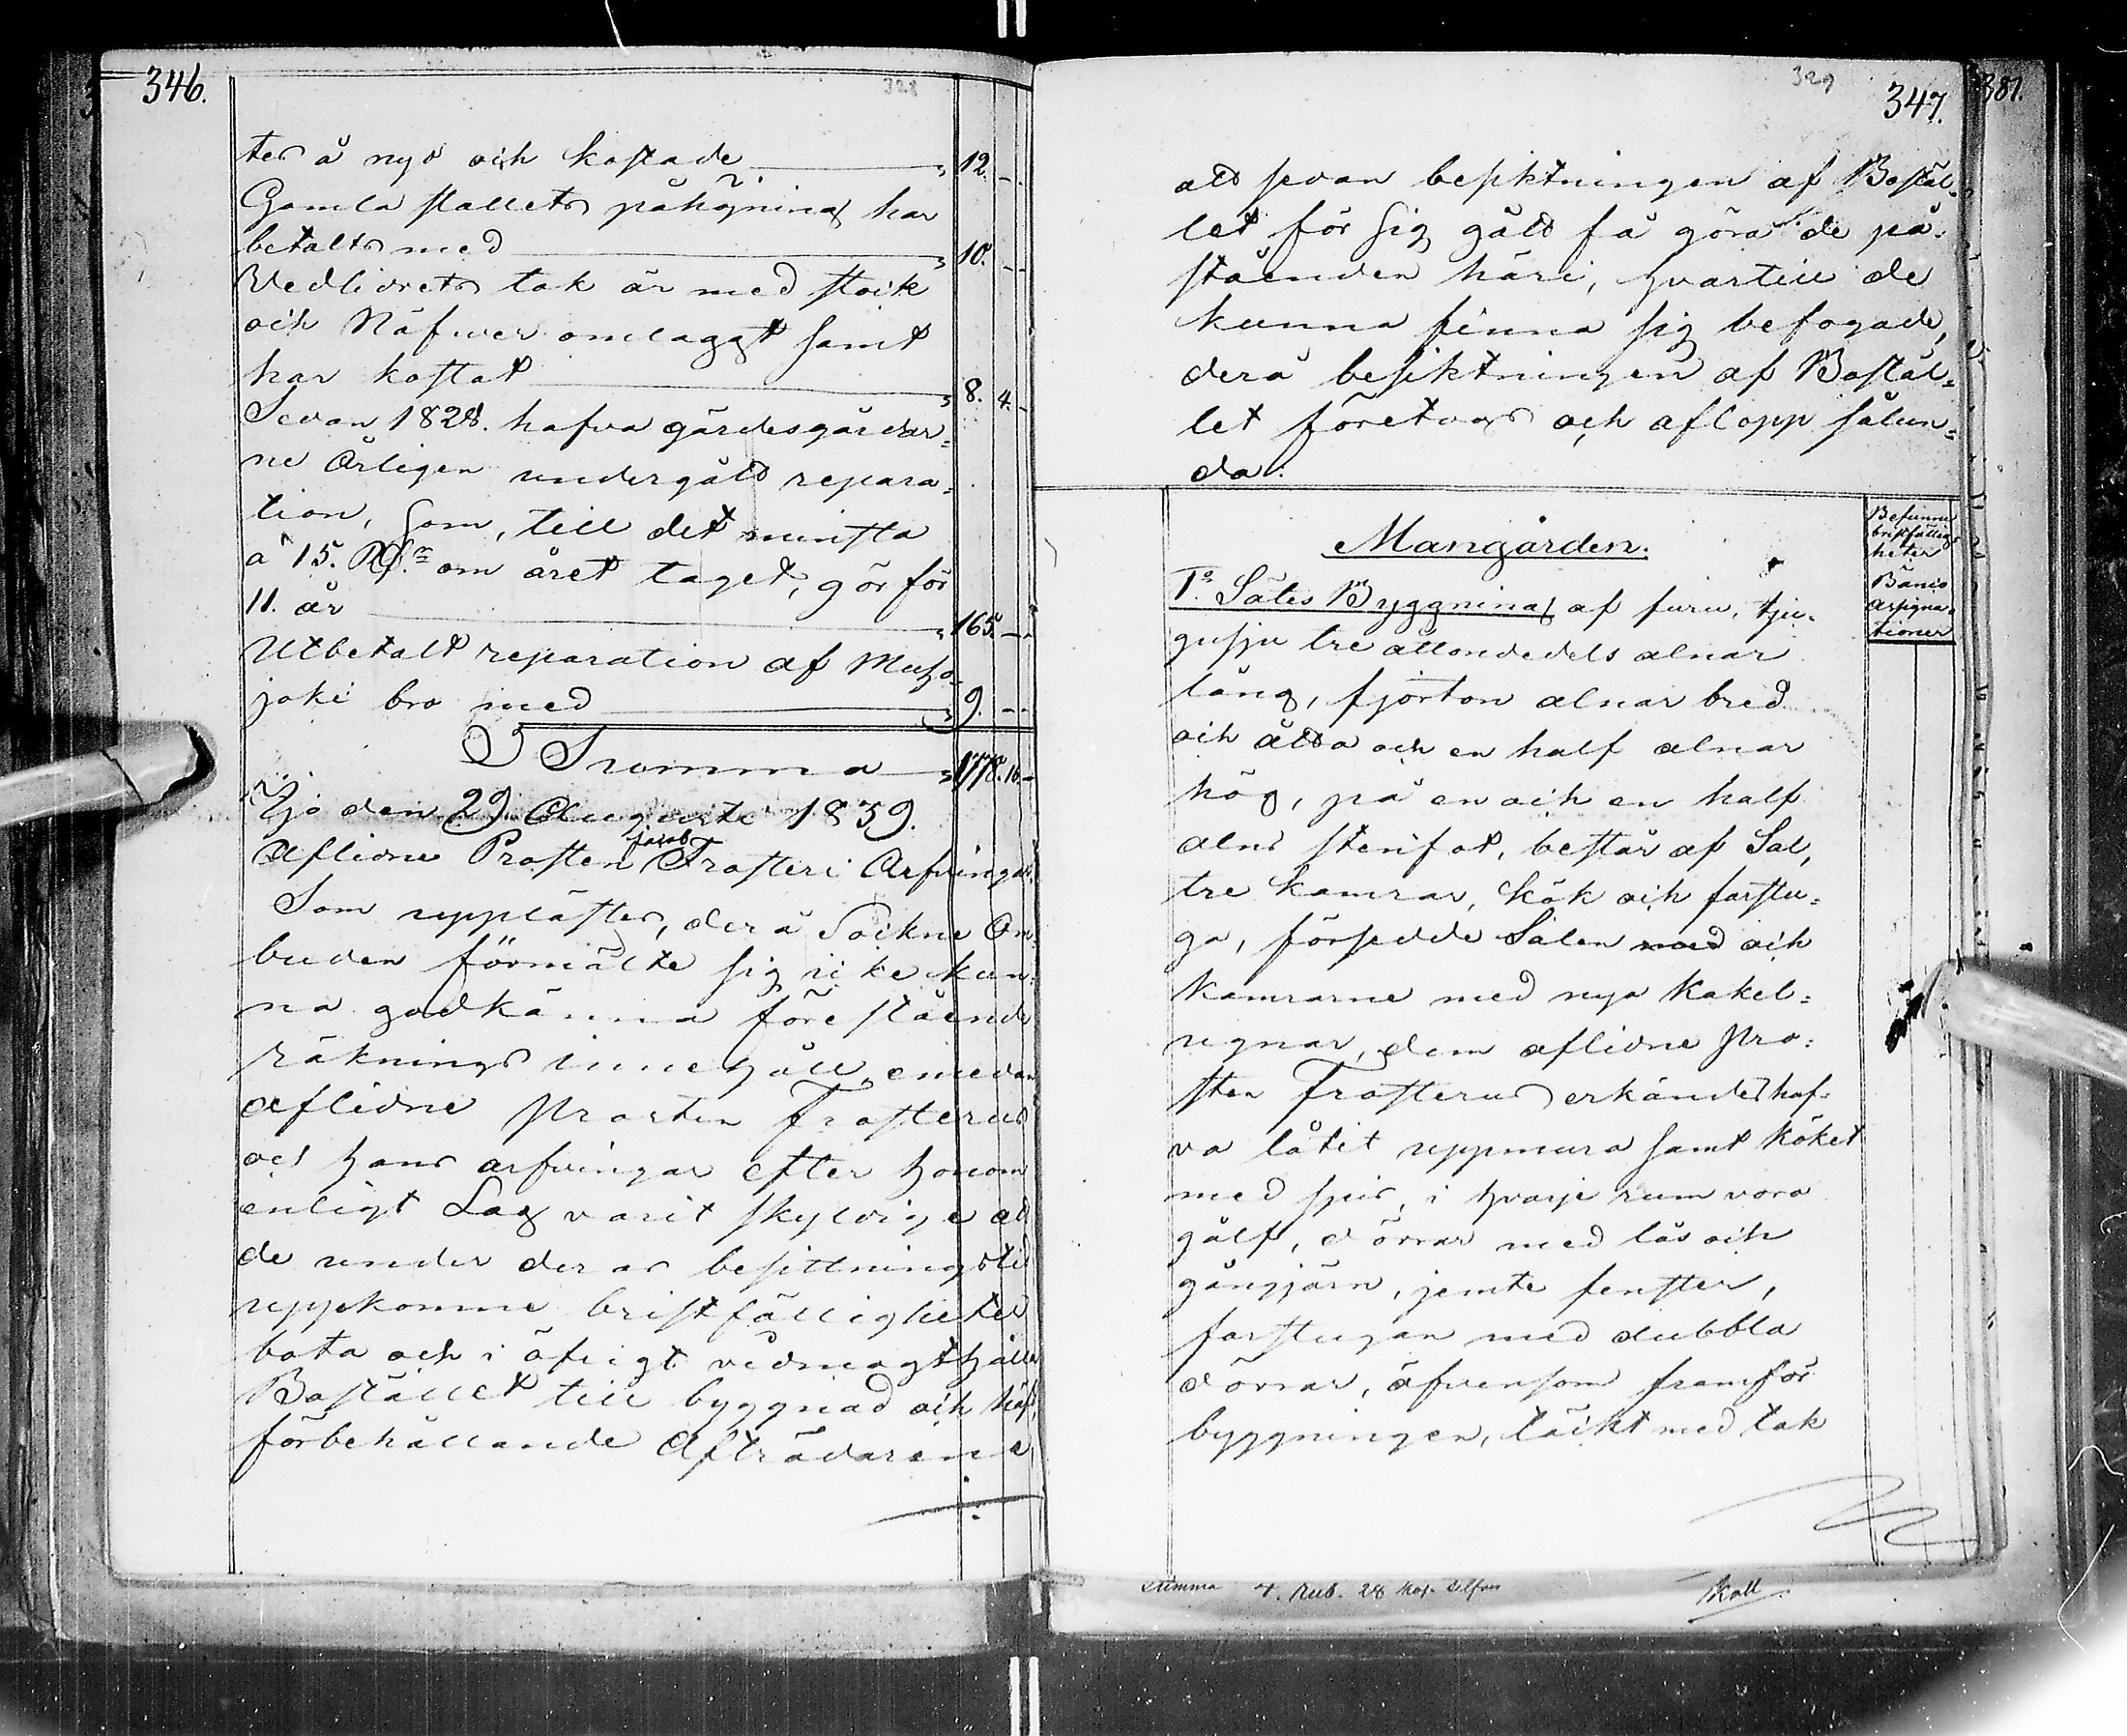 346.
328
ters å nyo och kostade " 12. -
Gamla stallets påhögning har
betalts med " 10. -
Vedlidrets tak är med stock
och Näfwer omlaggt samt
har kostat " 8. 4. -
Sedan 1828. hafva gärdesgårdar=
ne Årligen undergått repara=
tion, Som, till det minsta
a 15. R. om året taget, gör för
11. år " 165. -
Utbetalt reparation af Muho=
joki bro med " 9. -
Summa " 1778. 16 -
Ijo den 29 Augusti 1839.
Aflidne Prosten Jacob Frosteri Arfvingar.
Som upplästes, derå Sockne Om=
buden förmälte sig icke kun=
na godkänna förestående
räknings innehåll, emedan
aflidne Prosten Frosterus
och hans arfvingar efter honom
enligt Lag varit skyldige att
de under deras besittningstid
uppkomne bristfälligheter
bota och i öfrigt vidmagthålla
Bostället till byggnad och häfd,
förbehållande Afträdarene
329
347.
381.
att sedan besiktningen af Bostäl=
let för sig gått få göra de på=
ståenden häri, hvartill de
kunna finna sig befogade,
derå besiktningen af Bostäl=
let företogs och aflopp sålun=
da:
Befunne
bristfällig=
heter
Banco
assigna=
tioner
Mangården.
1:o Sätes Byggning af furu, tju=
gusju tre åttondedels alnar
lång, fjorton alnar bred
och åtta och en half alnar
hög, på en och en half
alns stenfot, består af Sal,
tre kamrar, kök och farstu=
ga, försedde Salen med och
kamrarne med nya kakel=
ugnar, dem aflidne Pro=
sten Frosterus erkändes haf=
va låtit uppmura samt köket
med spis, i hvarje rum voro
gålf, dörrar med lås och
gångjärn, jemte fenster,
farstugan med dubbla
dörrar, äfvensom framför
byggningen, täckt med tak
Stemma 4. Rub. 28 kop. Silfver